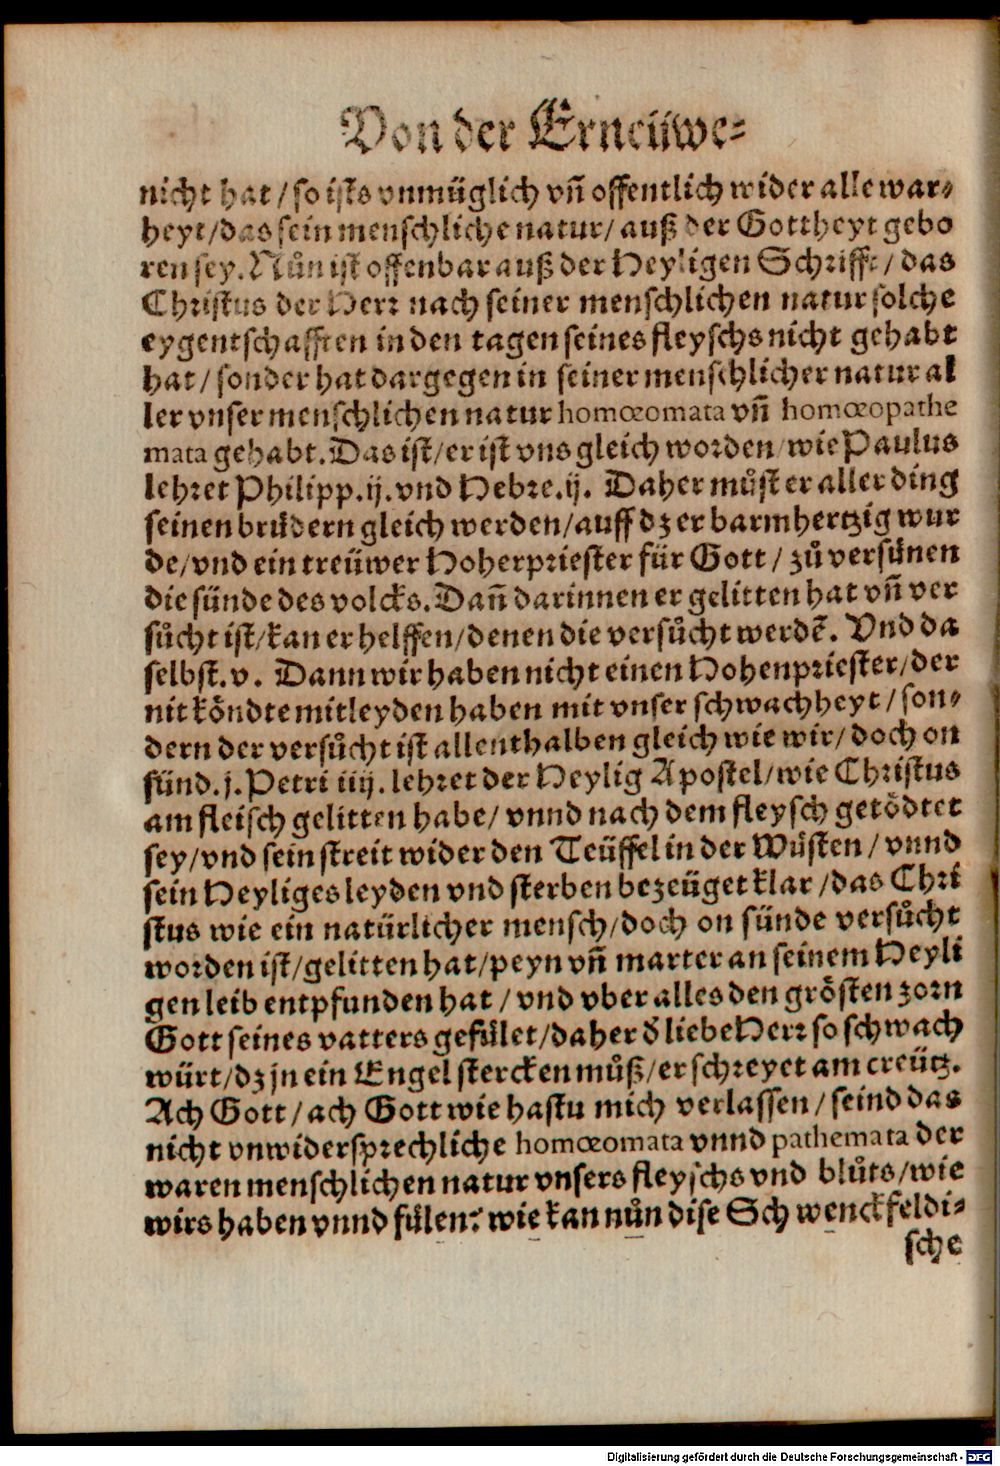 Von der Erneüwe-
nicht hat / so ists vnmüglich vñ offentlich wider alle war-
heyt/das sein menschliche natur/ auß der Gottheyt gebo
ren sey. Nůn ist offenbar auß der Heyligen Schrifft/ das
Christus der Herr nach seiner menschlichen natur solche
eygentschafften in den tagen seines fleyschs nicht gehabt
hat / sonder hat dargegen in seiner menschlicher natur al
ler vnser menschlichen natur homœomata vñ homœopathe
mata gehabt. Das ist/er ist vns gleich worden/wie Paulus
lehret Philipp.ij.vnd Hebre.ij. Daher můst er aller ding
seinen brůdern gleich werden/auff dz er barmhertzig wur
de/vnd ein treüwer Hoherpriester für Gott / zů versůnen
die sünde des volcks. Dañ darinnen er gelitten hat vñ ver
sůcht ist/kan er helffen/denen die versůcht werdẽ. Vnd da
selbst.v. Dann wir haben nicht einen Hohenpriester/der
nit kőndte mitleyden haben mit vnser schwachheyt / son-
dern der versůcht ist allenthalben gleich wie wir/ doch on
sünd.j.Petri iiij. lehret der Heylig Apostel/wie Christus
am fleisch gelitten habe/ vnnd nach dem fleysch getődtet
sey/vnd sein streit wider den Teüffel in der Wůsten / vnnd
sein Heyliges leyden vnd sterben bezeüget klar /das Chri
stus wie ein natürlicher mensch/doch on sünde versůcht
worden ist/gelitten hat/peyn vñ marter an seinem Heyli
gen leib entpfunden hat / vnd vber alles den grősten zorn
Gott seines vatters gefůlet/daher d̕ liebe Herr so schwach
würt/dz jn ein Engel stercken můß/er schreyet am creütz.
Ach Gott / ach Gott wie hastu mich verlassen / seind das
nicht vnwidersprechliche homœomata vnnd pathemata der
waren menschlichen natur vnsers fleyschs vnd blůts/wie
wirs haben vnnd fůlen? wie kan nůn dise Schwenckfeldi-
sche
Digitalisierung gefördert durch die Deutsche Forschungsgemeinschaft - DFG